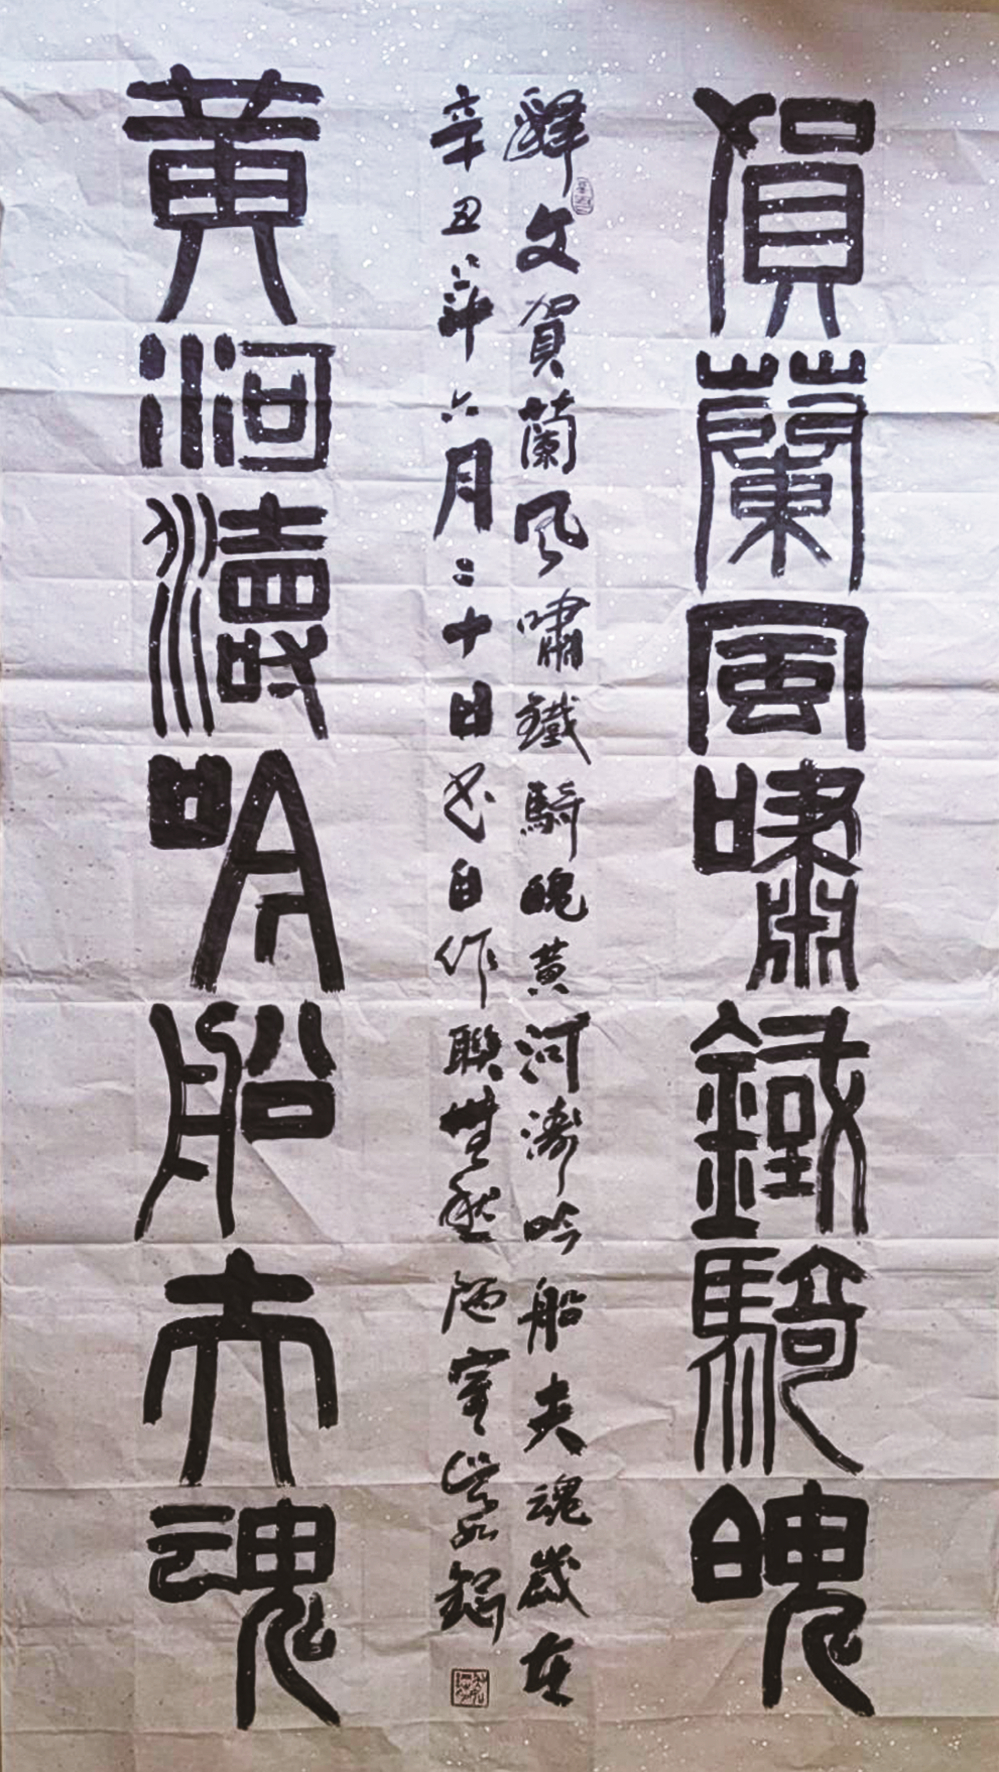 賀蘭風嘯鐵騎魄
釋文賀蘭風嘯鐵騎魄黃河濤吟船夫魂歲在
辛丑年六月二十日書自作聯無愁陋室
黃河濤吟船夫魂